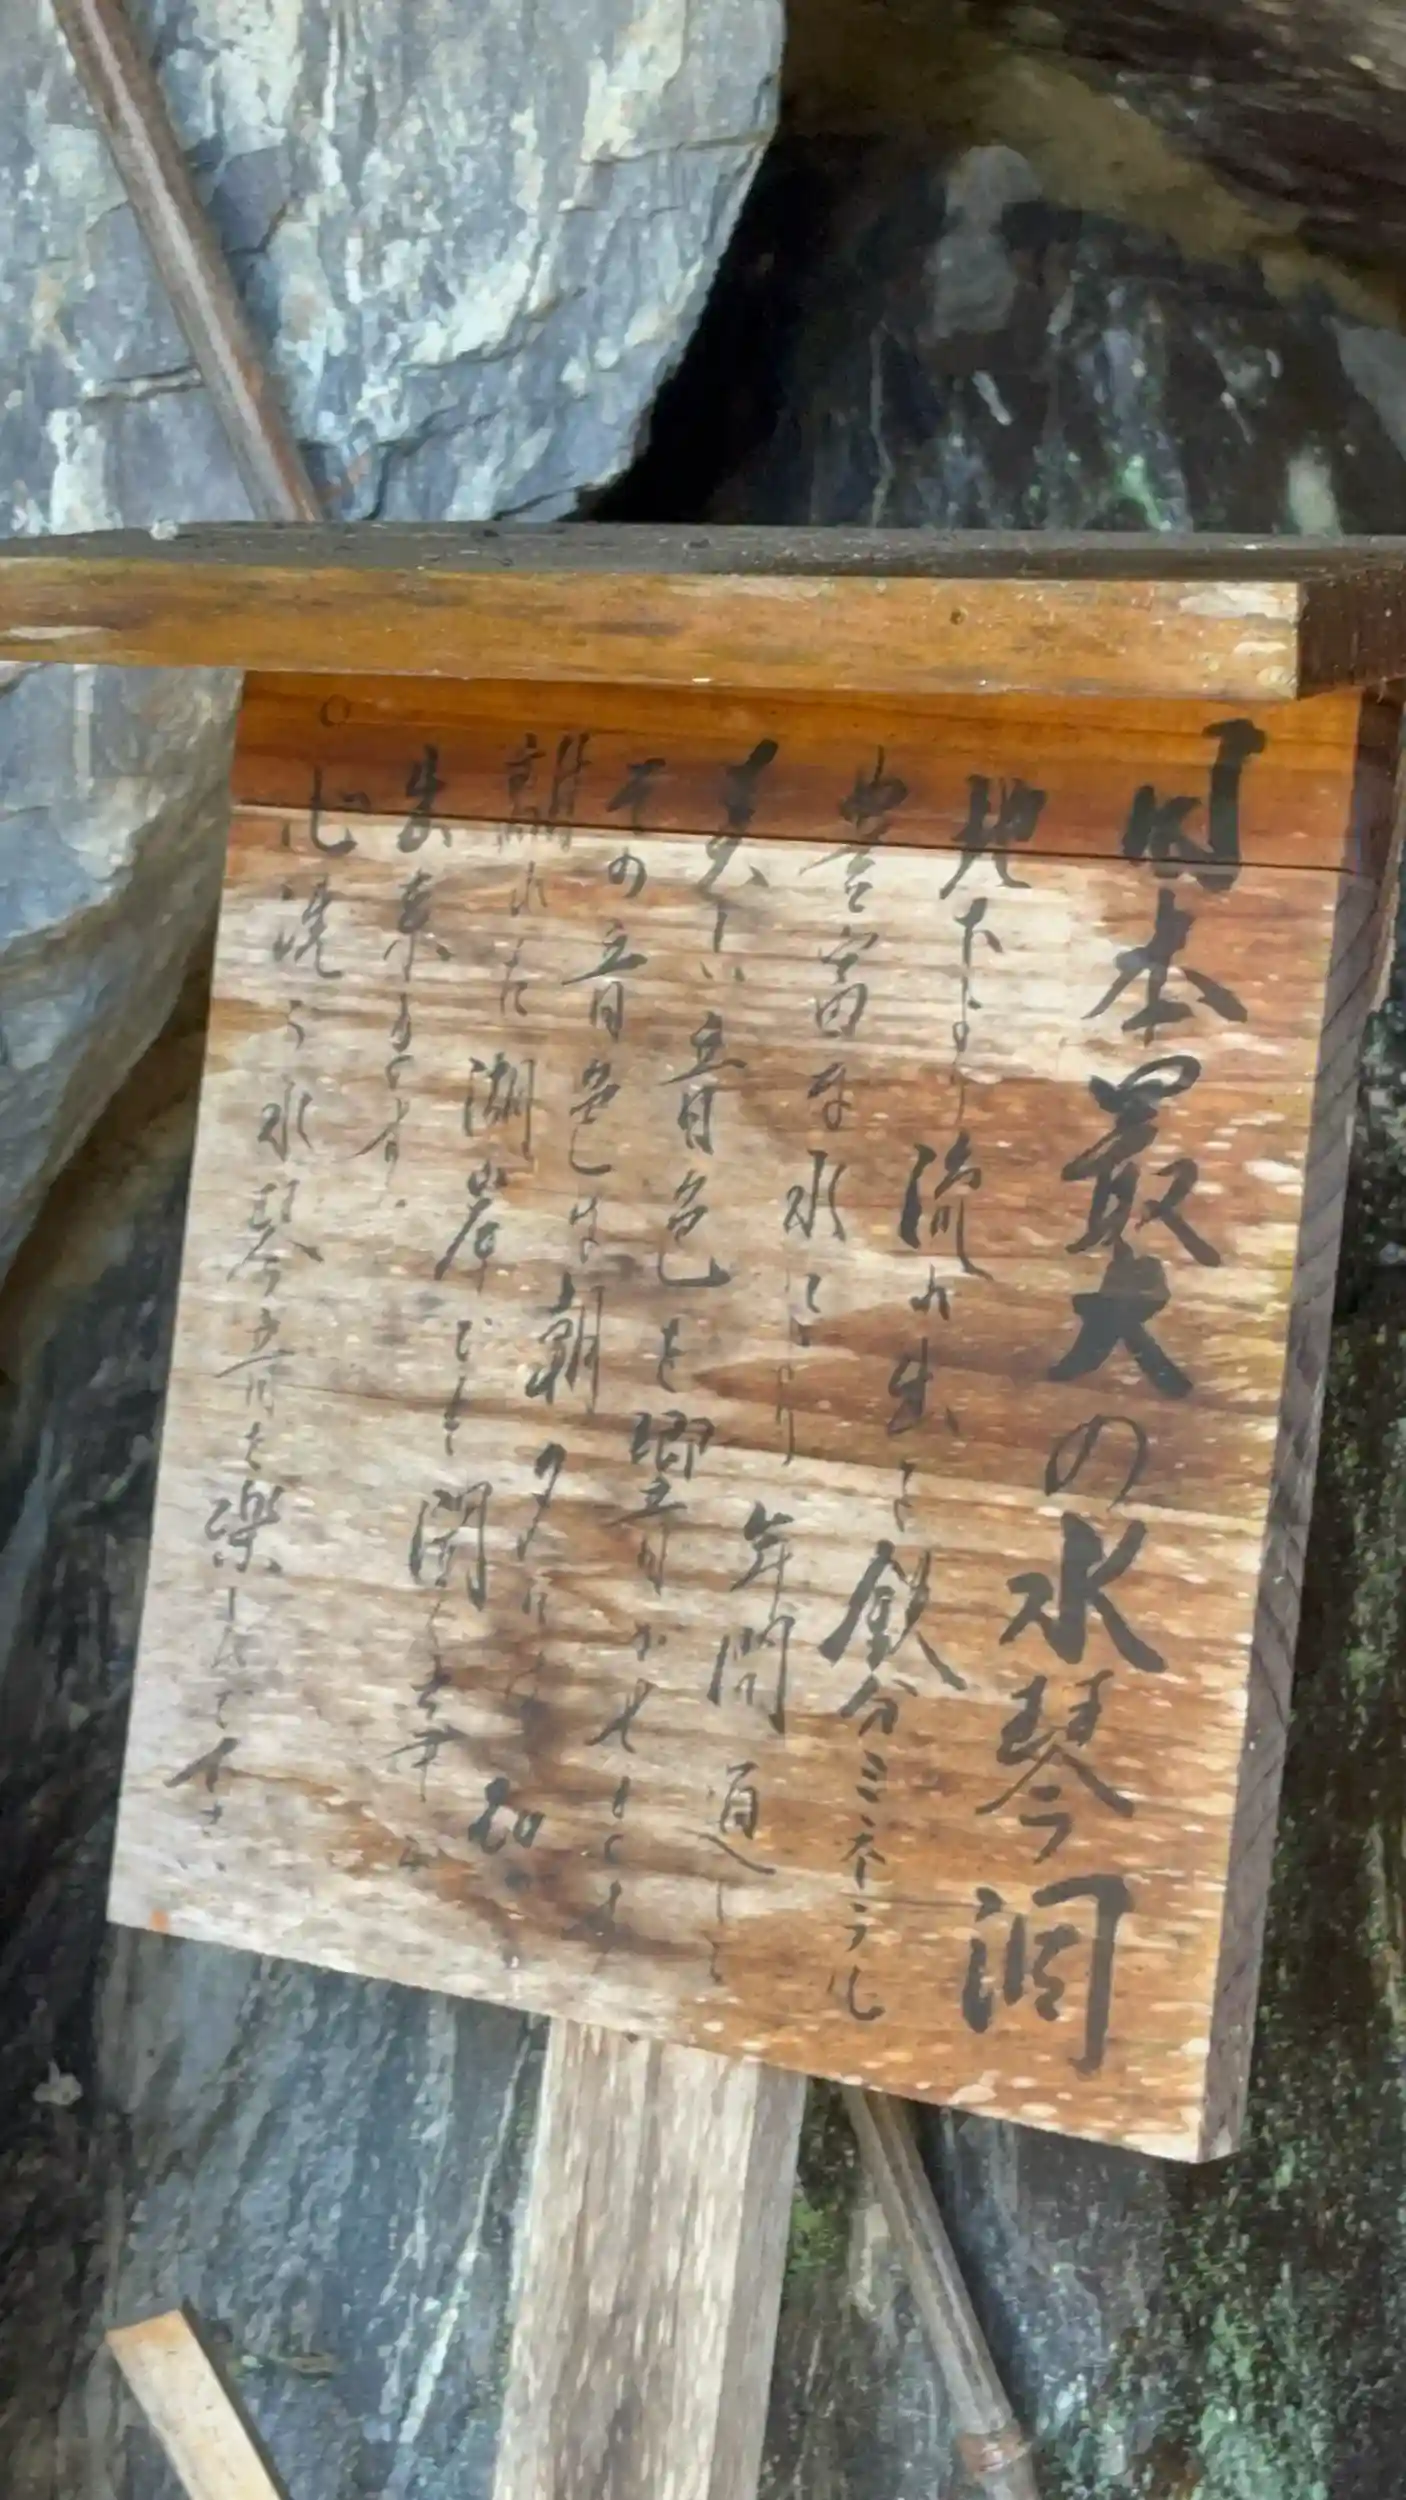 日本最大の水琴洞
地下より流れ出て鉄分ミネラル
豊富な水により年間通して
美しい音色を響かせます
その音色は朝夕には二、三
離れた湖岸でも聞く事が
出来ます。
○心洗う水琴音を楽しんで下さい